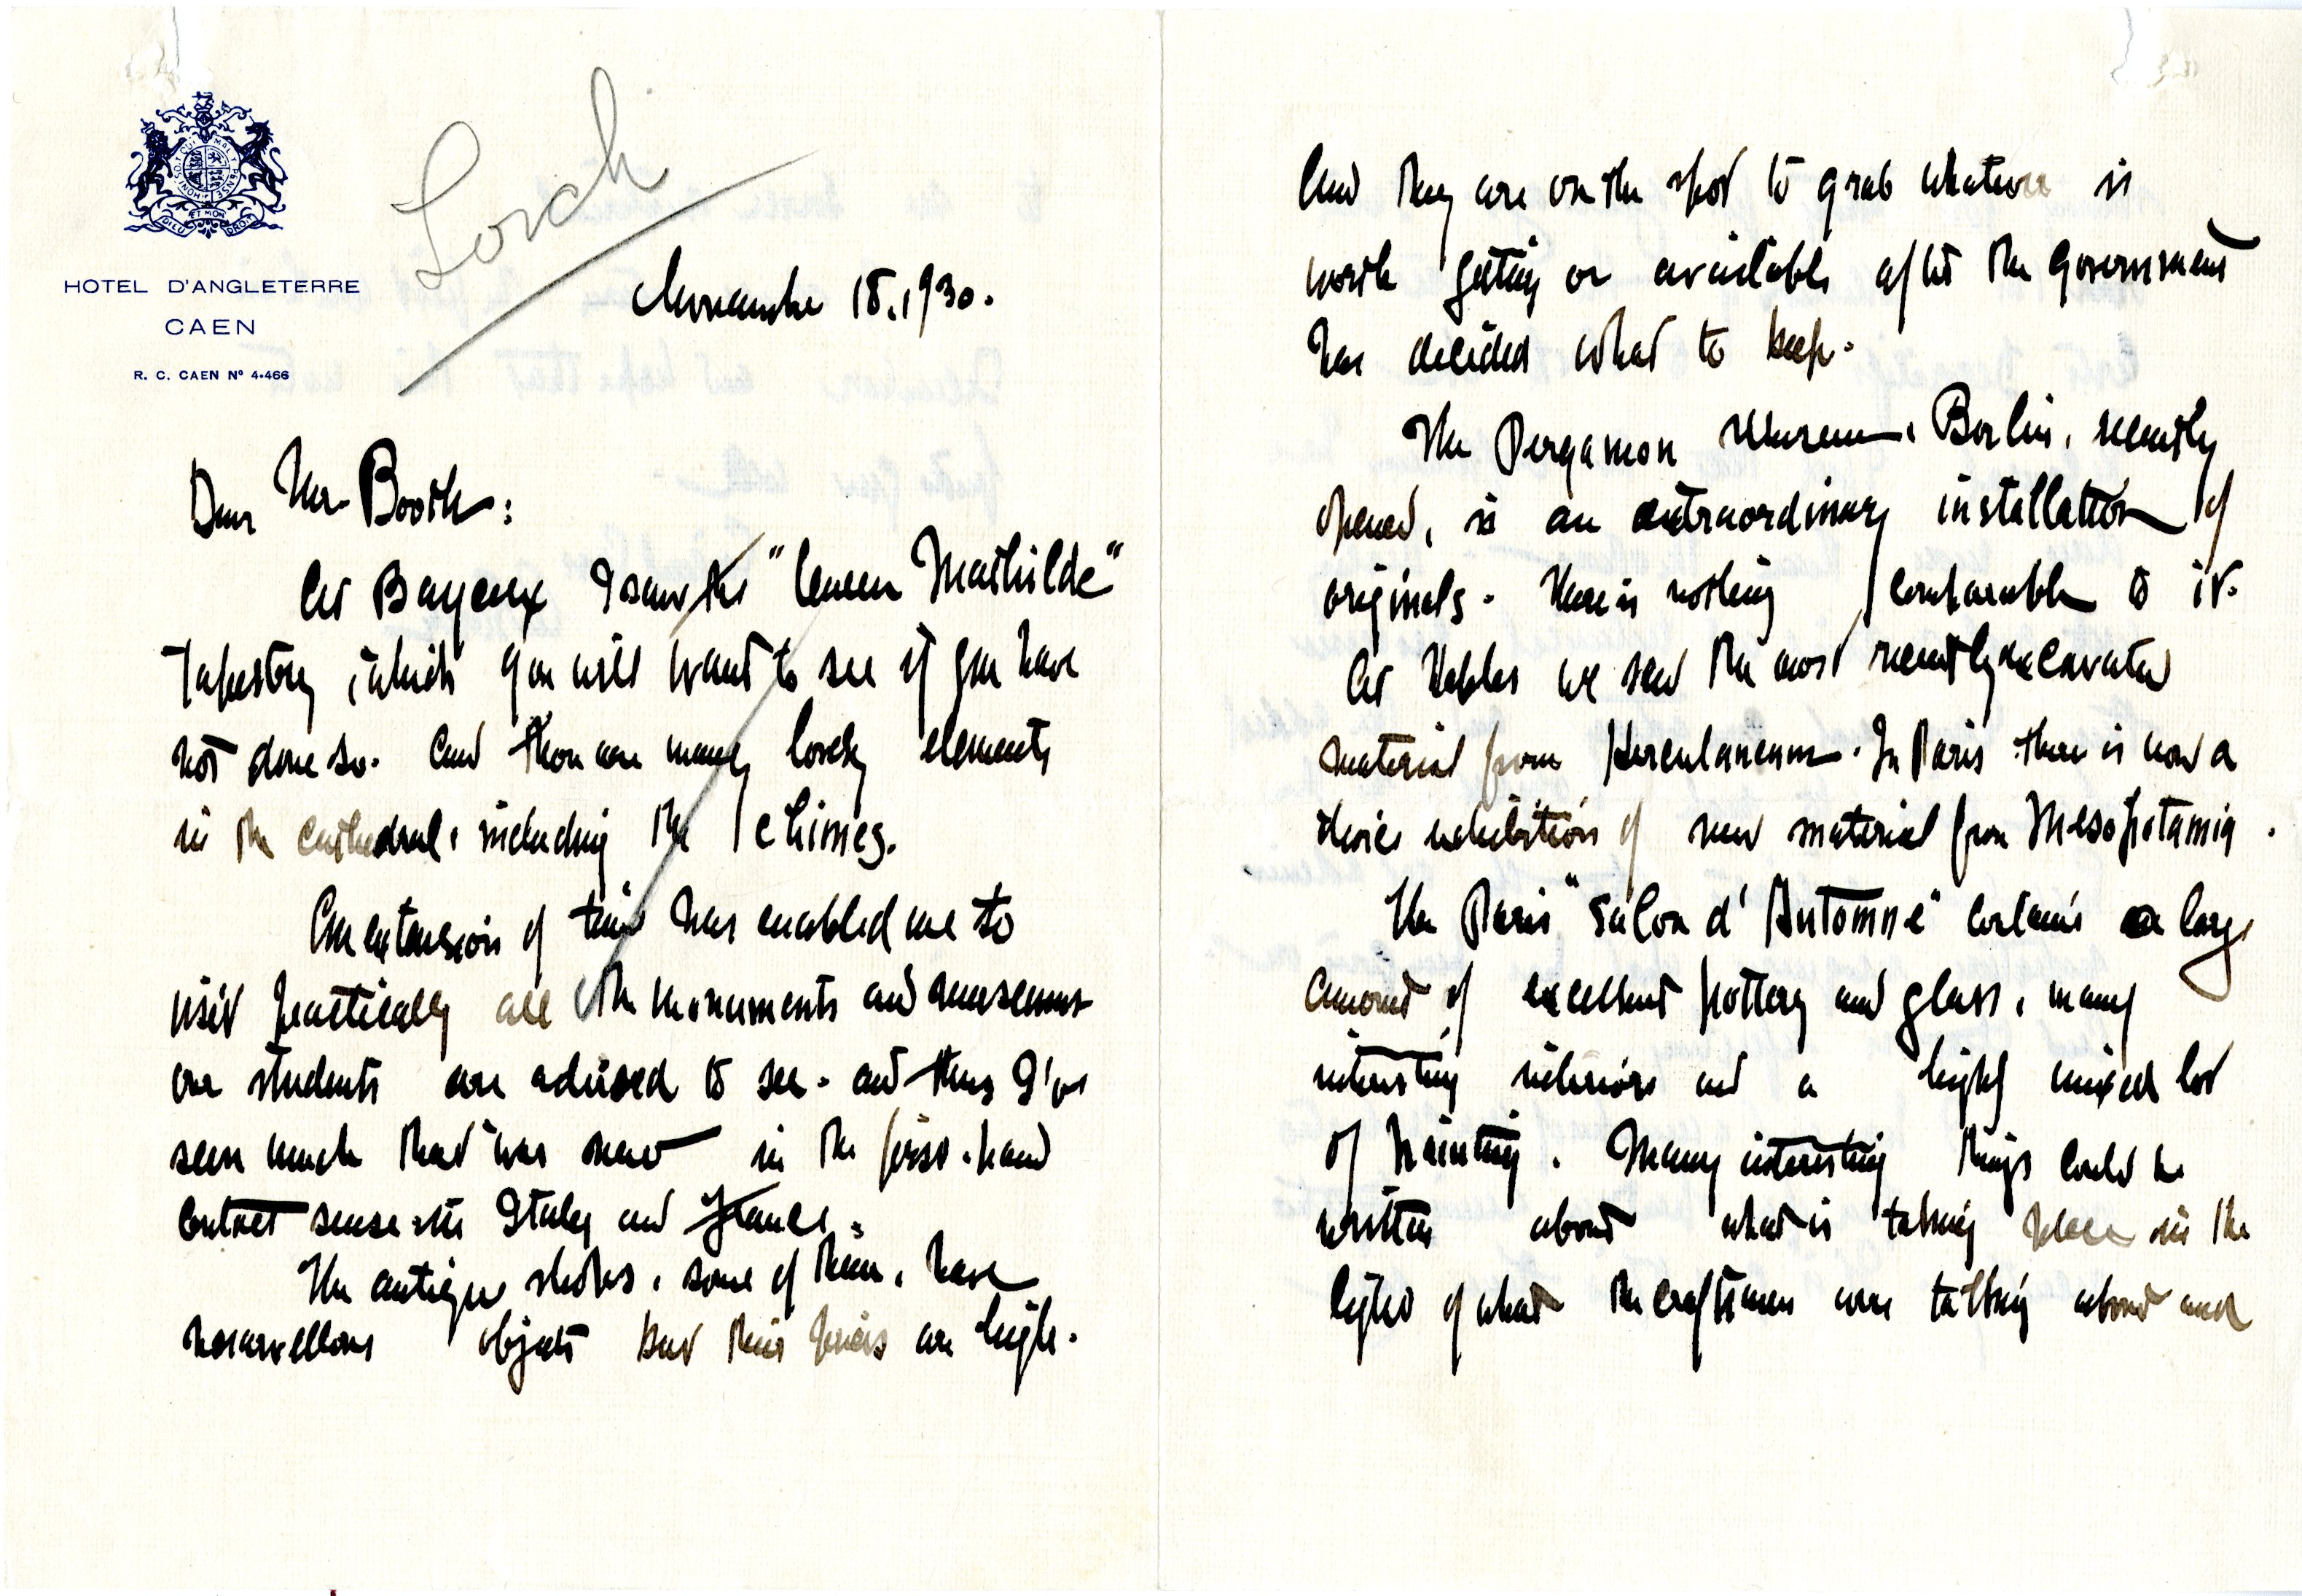 HOTEL D'ANGLETERRE
CAEN
R. C. CAEN Nº 4-466
Lorch
November 18, 1930.
Dear Mr Booth:
At Bayeux I saw the "Queen Mathilde"
Tapestry, which you will want to see if you have
not done so. And there are many lovely elements
in the cathedral, including the chimes.
An extension of time has enabled me to
visit practically all the monuments and museums
our students are advised to see - and thus I've
seen much that was new in the first-hand
contact sense in Italy and France.
The antique shops, some of them, have
marvellous objects but their prices are high.
And they are on the spot to grab whatever is
worth getting or available after the government
has decided what to keep.
The Pergamon Museum, Berlin, recently
opened, is an extraordinary installation of
originals. There is nothing comparable to it.
At Naples we saw the most recently excavated
material from Herculaneum. In Paris there is now a
choice exhibition of new material from Mesopotamia.
The Paris "Salon d'Automne" contains a large
amount of excellent pottery and glass, many
interesting interiors and a highly mixed lot
of painting. Many interesting things could be
written about what is taking place in the
light of what the craftsmen were talking about and